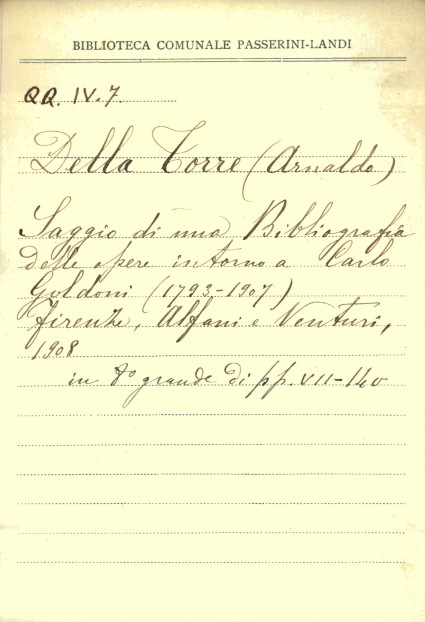 BIBLIOTECA COMUNALE PASSERINI-LANDI
QQ. IV. 7.
Della Torre (Arnaldo)
Saggio di una Bibliografia
delle opere intorno a Carlo
Goldoni (1793-1907)
Firenze, Alfani e Venturi,
1908
in 8º grande di pp. VII-140